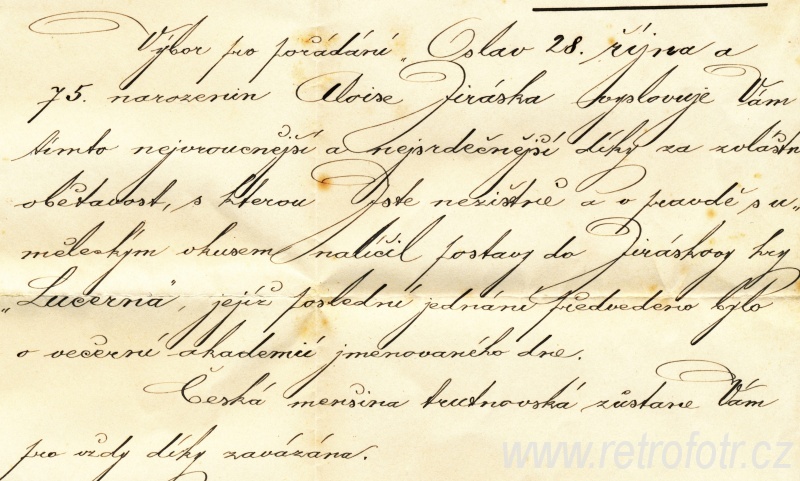 Výbor pro pořádání „Oslav 28. října a
75. narozenin Aloise Jiráska vyslovuje Vám
tímto nejvroucnější a nejsrdečnější díky za zvláštn
obětavost, s kterou Jste nezištně a v pravdě s u„
měleckým vkusem nalíčil postavy do Jiráskovy hry
„Lucerna", jejíž poslední jednání předvedeno bylo
o večerní akademii jmenovaného dne.
Česká menšina trutnovská zůstane Vám
pro vždy díky zavázána.
www.retrofotr.cz